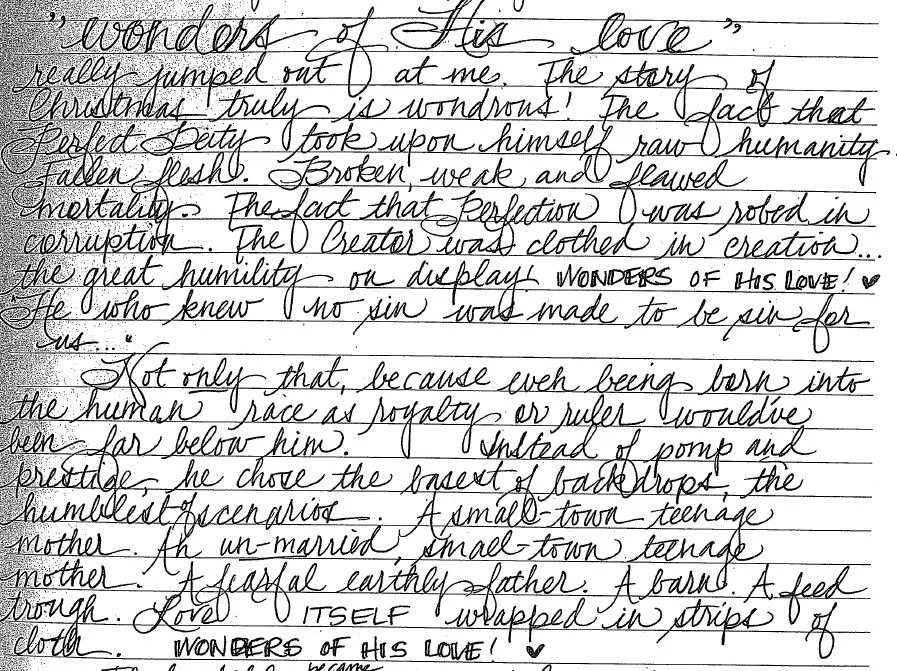 "wonders of His love"
really jumped out at me. The story of
Christmas truly is wondrous! The fact that
Perfect Deity took upon himself raw humanity.
Fallen flesh. Broken, weak and flawed
mortality. The fact that Perfection was robed in
corruption. The Creator was clothed in creation...
the great humility on display! WONDERS OF HIS LOVE! ♥
"He who knew no sin was made to be sin for
us..."
Not only that, because even being born into
the human race as royalty or ruler would've
been far below him. Instead of pomp and
prestige, he chose the basest of backdrops, the
humblest of scenarios. A small-town teenage
mother. An un-married, small-town teenage
mother. A fearful earthly father. A barn. A feed
trough. Love ITSELF wrapped in strips of
cloth. WONDERS OF HIS LOVE! ♥
became